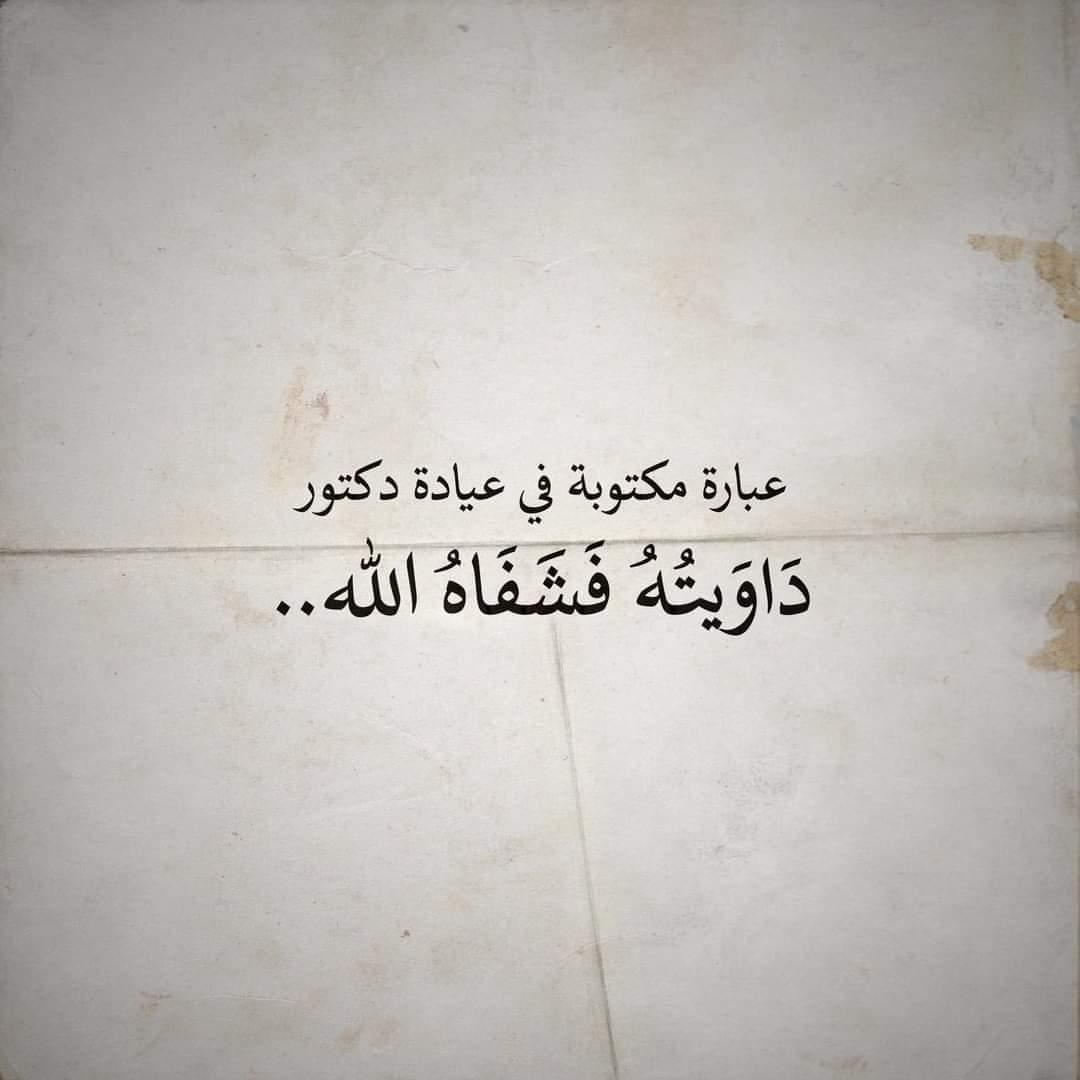 عبارة مكتوبة في عيادة دكتور
دَاوَيتُهُ فَشَفَاهُ الله..